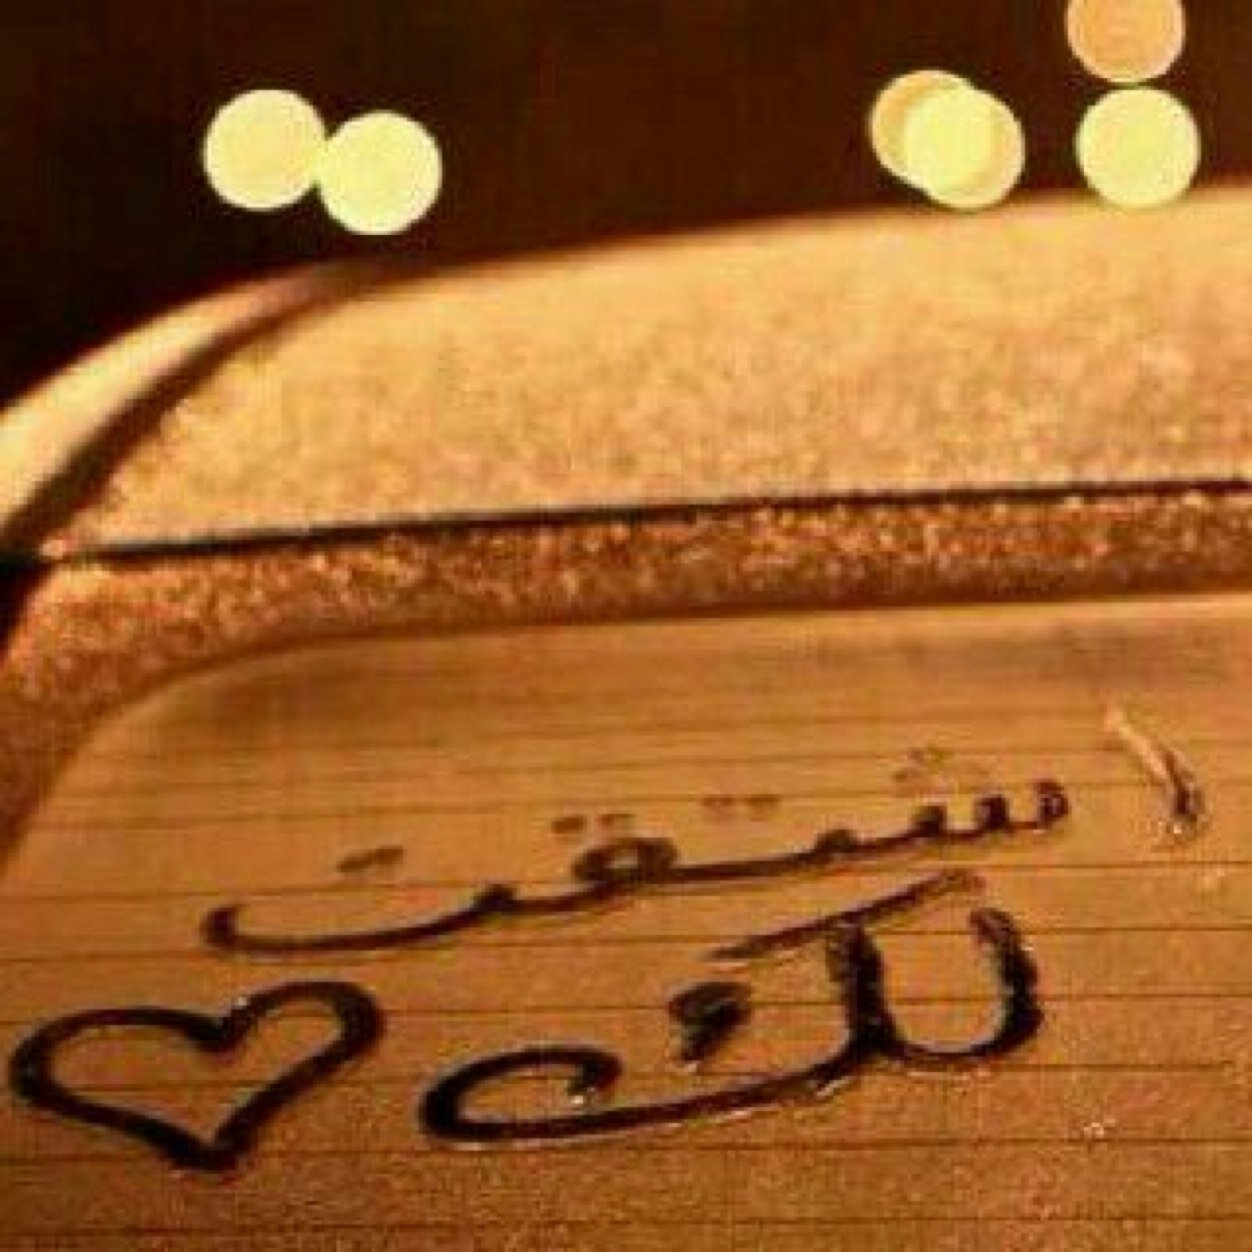 اشتقت
لك